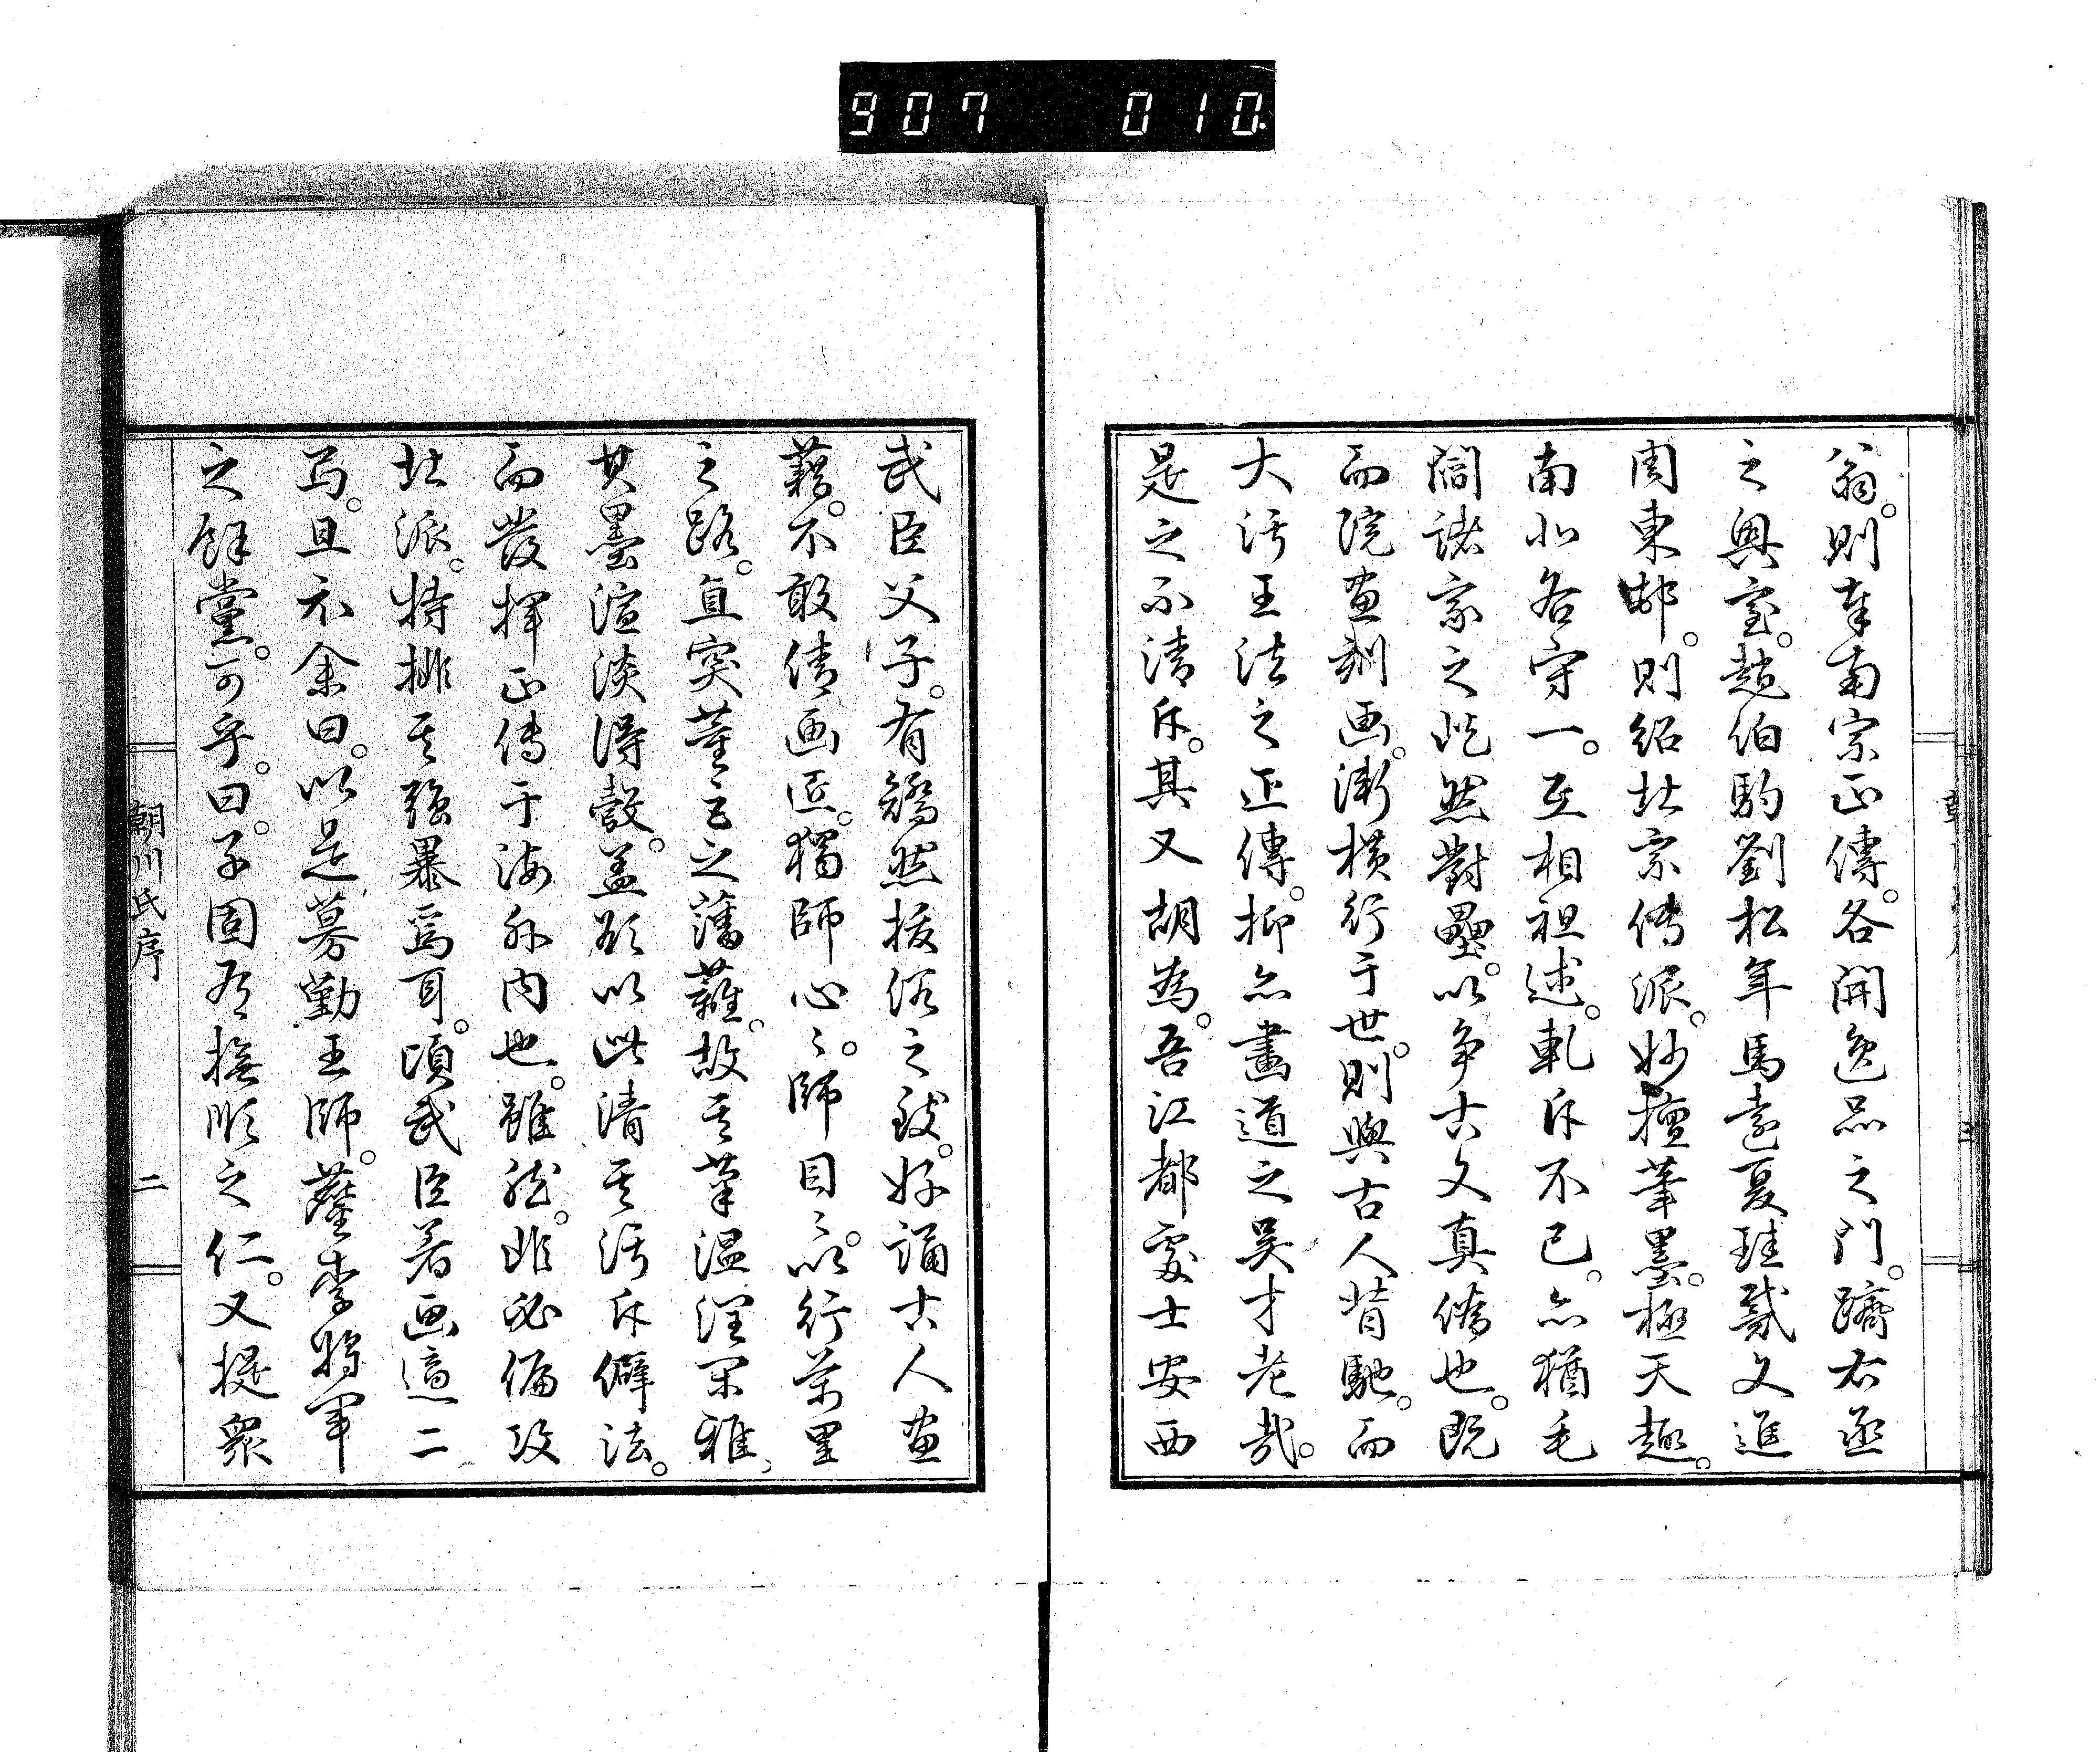 907 010
翁。則奉南宗正傳。各開逸品之門。躋右丞
之奧室。趙伯駒劉松年馬遠夏珪戴文進
周東邨。則紹北宗傳派。妙擅筆墨。極天趣。
南北各守一。互相祖述。軋斥不已。亦猶毛
閻諸家之屹然對壘。以爭古文真僞也。既
而院畫刻画。漸横行于世。則與古人背馳。而
大污王法之正傳。抑亦畫道之吴才老哉。
是之不清斥。其又胡為。吾江都處士安西
武臣父子。有翛然拔俗之致。好誦古人畫
藉。不敢倩画匠。獨師心〻。師目〻。以行萬里
之路。直突董巨之藩蘺。故其筆温潤閑雅、
其墨渲淡得彀。盖欲以此清其污斥僻法。
而發揮正傳于海外内也。雖然。非必偏攻
北派。特排其强暴焉耳。頃武臣著画適二
焉。且示余曰。以是募勤王師。鏖李將軍
之餘黨。可乎。曰。子固有撫順之仁。又提衆
朝川氏序 二